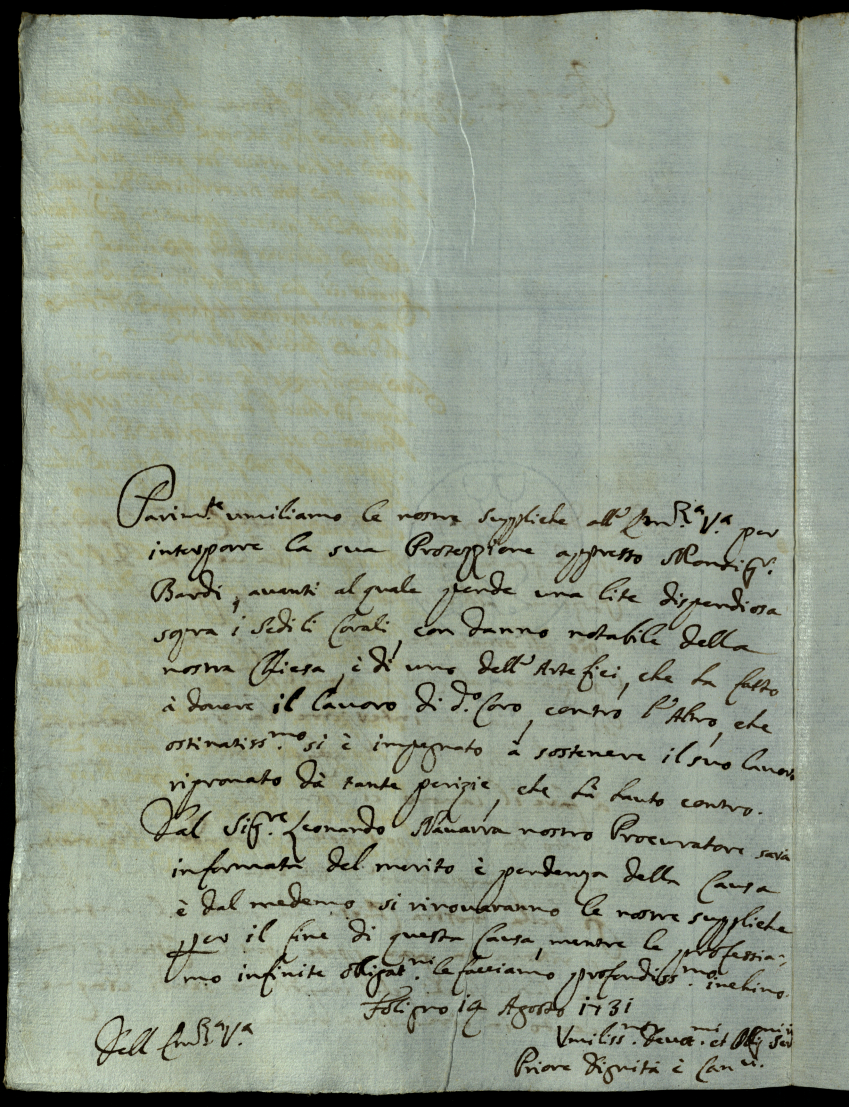 Parim.te umiliamo le nostre suppliche all' Em.za V.a per
interporre la sua Protezzione appresso Monsig.r
Bardi, avanti al quale pende una lite dispendiosa
sopra i Sedili Corali, con danno notabile della
nostra Chiesa, è di uno dell' Artefici, che ha fatto
à dovere il lavoro di d.o Coro, contro l'Altro, che
ostinatiss.mo si è impegnato à sostenere il suo lavoro
riprovato dà tante perizie, che hà hauto contro.
Dal Sig.re Leonardo Navarra nostro Procuratore sarà
informata del merito è pendenza della Causa
è dal medemo si rinovaranno le nostre suppliche
per il fine di questa Causa, mentre le professia-
mo infinite obligat.ni le facciamo profondiss.mo inchino.
Foligno 14 Agosto 1731
Dell Em.za V.a
Umiliss.mi Devot.mi et Obbg.mi Ser
Priore Dignità è Can.ci